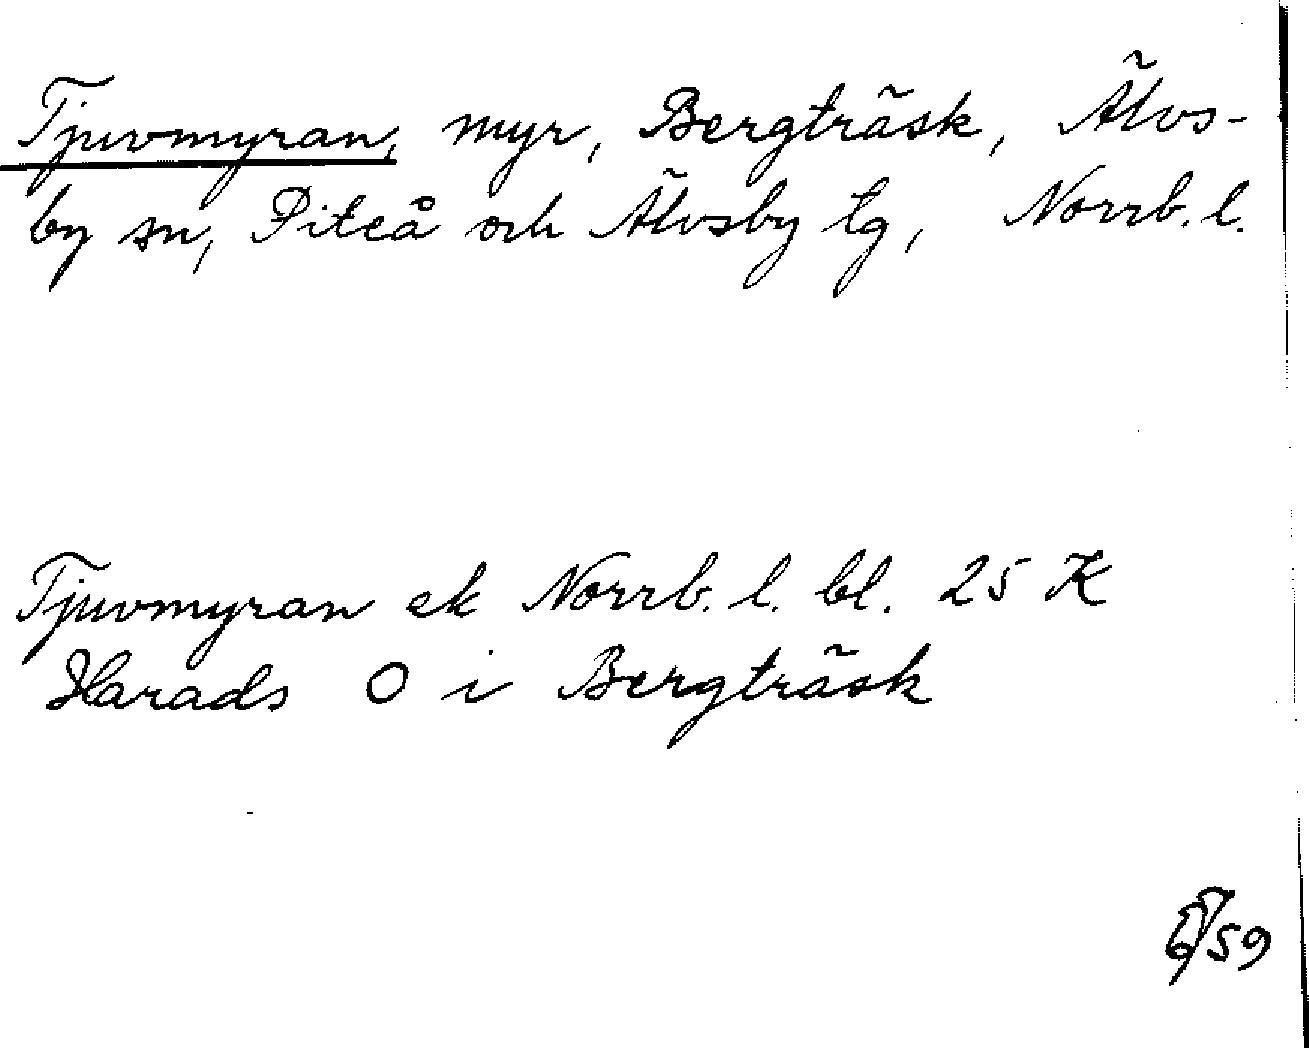 Tjuvmyran, myr, Bergträsk, Älvs-
by sn, Piteå och Älvsby tg, Norrb. l.
Tjuvmyran ek Norrb. l. bl. 25 K
Harads O i Bergträsk
59